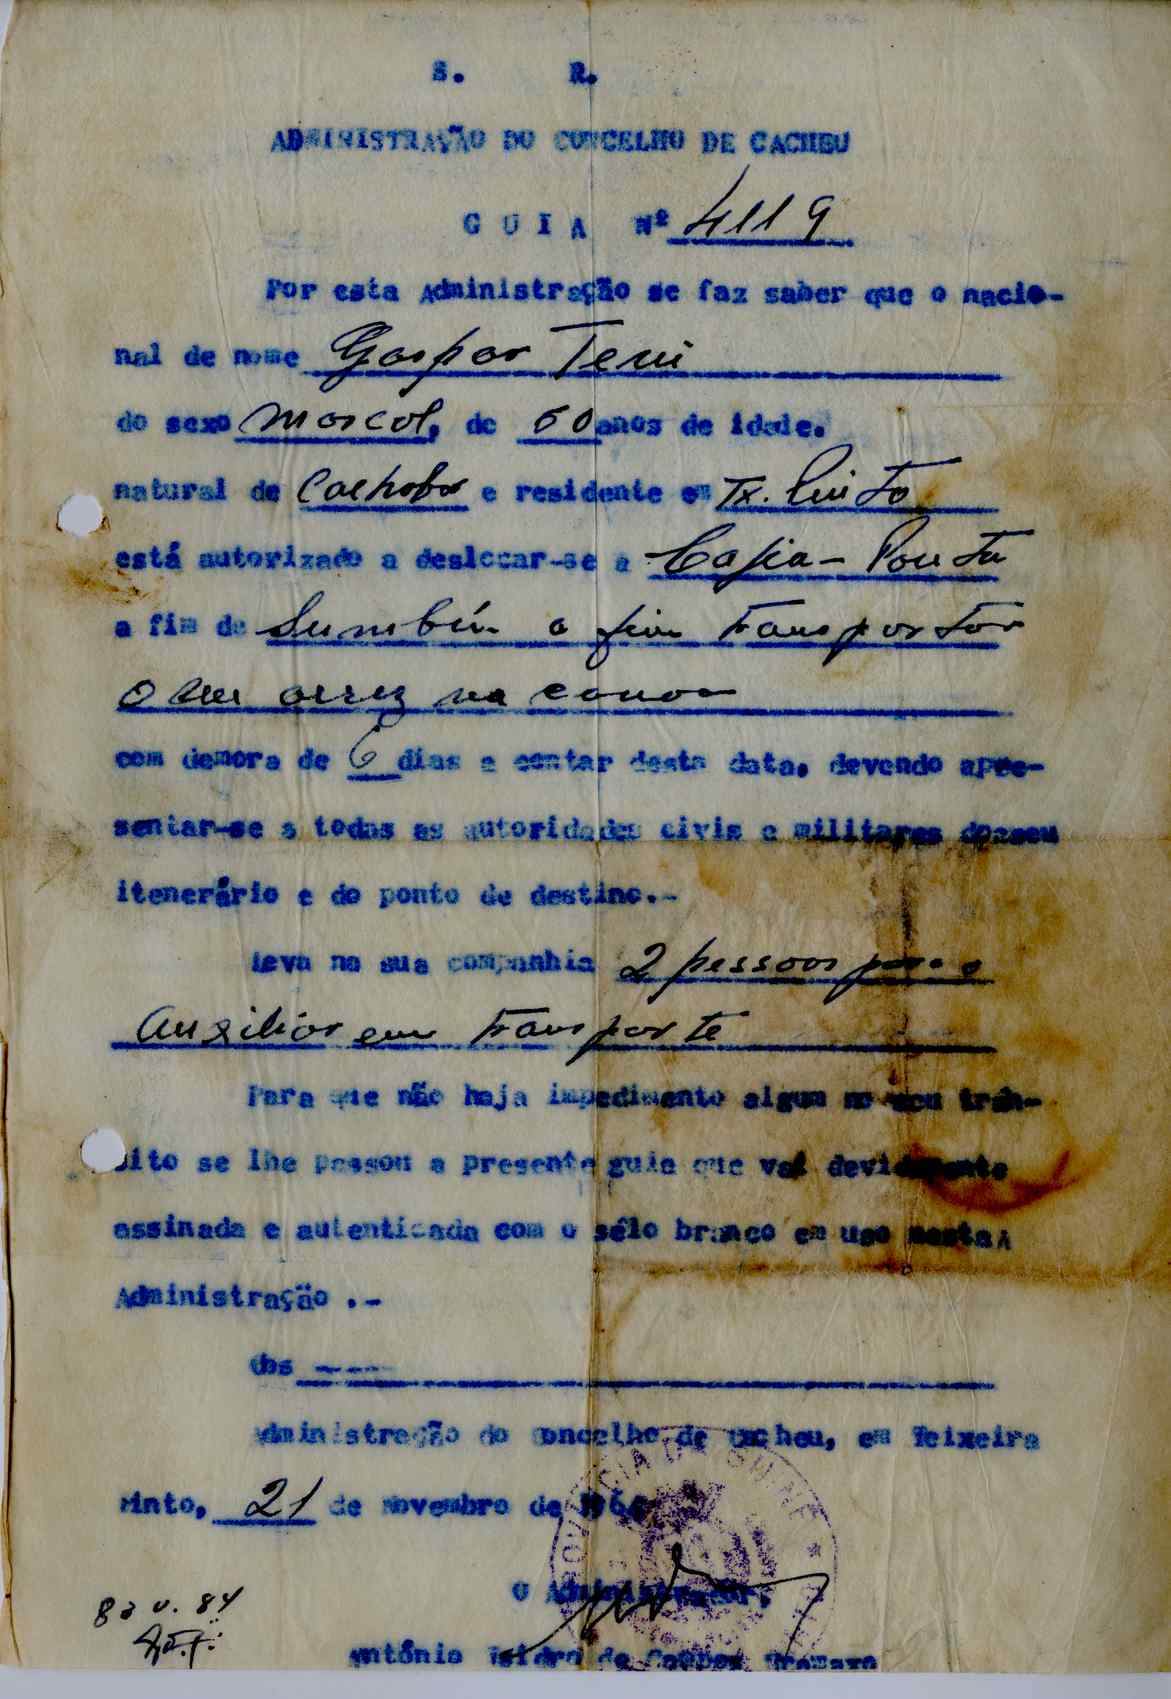 S. R.
ADMINISTRAÇÃO DO CONCELHO DE CACHEU
G U I A Nº 4119
Por esta Administração se faz saber que o nacio-
nal de nome Gaspar
do sexo mascol, de 60 anos de idade.
natural de e residente em Tx. Pinto
está autorizado a deslocar-se a
a fim de a fim transportar
o seu arroz na canoa
com demora de 6 dias a contar desta data, devendo apre-
sentar-se a todas as autoridades civis e militares do seu
itenerário e do ponto de destino.-
Leva na sua companhia 2 pessoas para o
Auxiliar em transporte
Para que não haja impedimento algum no seu trân-
sito se lhe passou a presente guia que vai devidamente
assinada e autenticada com o sêlo branco em uso nesta A
Administração .-
Obs ----
Administração do Concelho de Cacheu, em Teixeira
Pinto, 21 de Novembro de
PROVINCIA DA GUINÉ
O Administrador,
António Isidro de